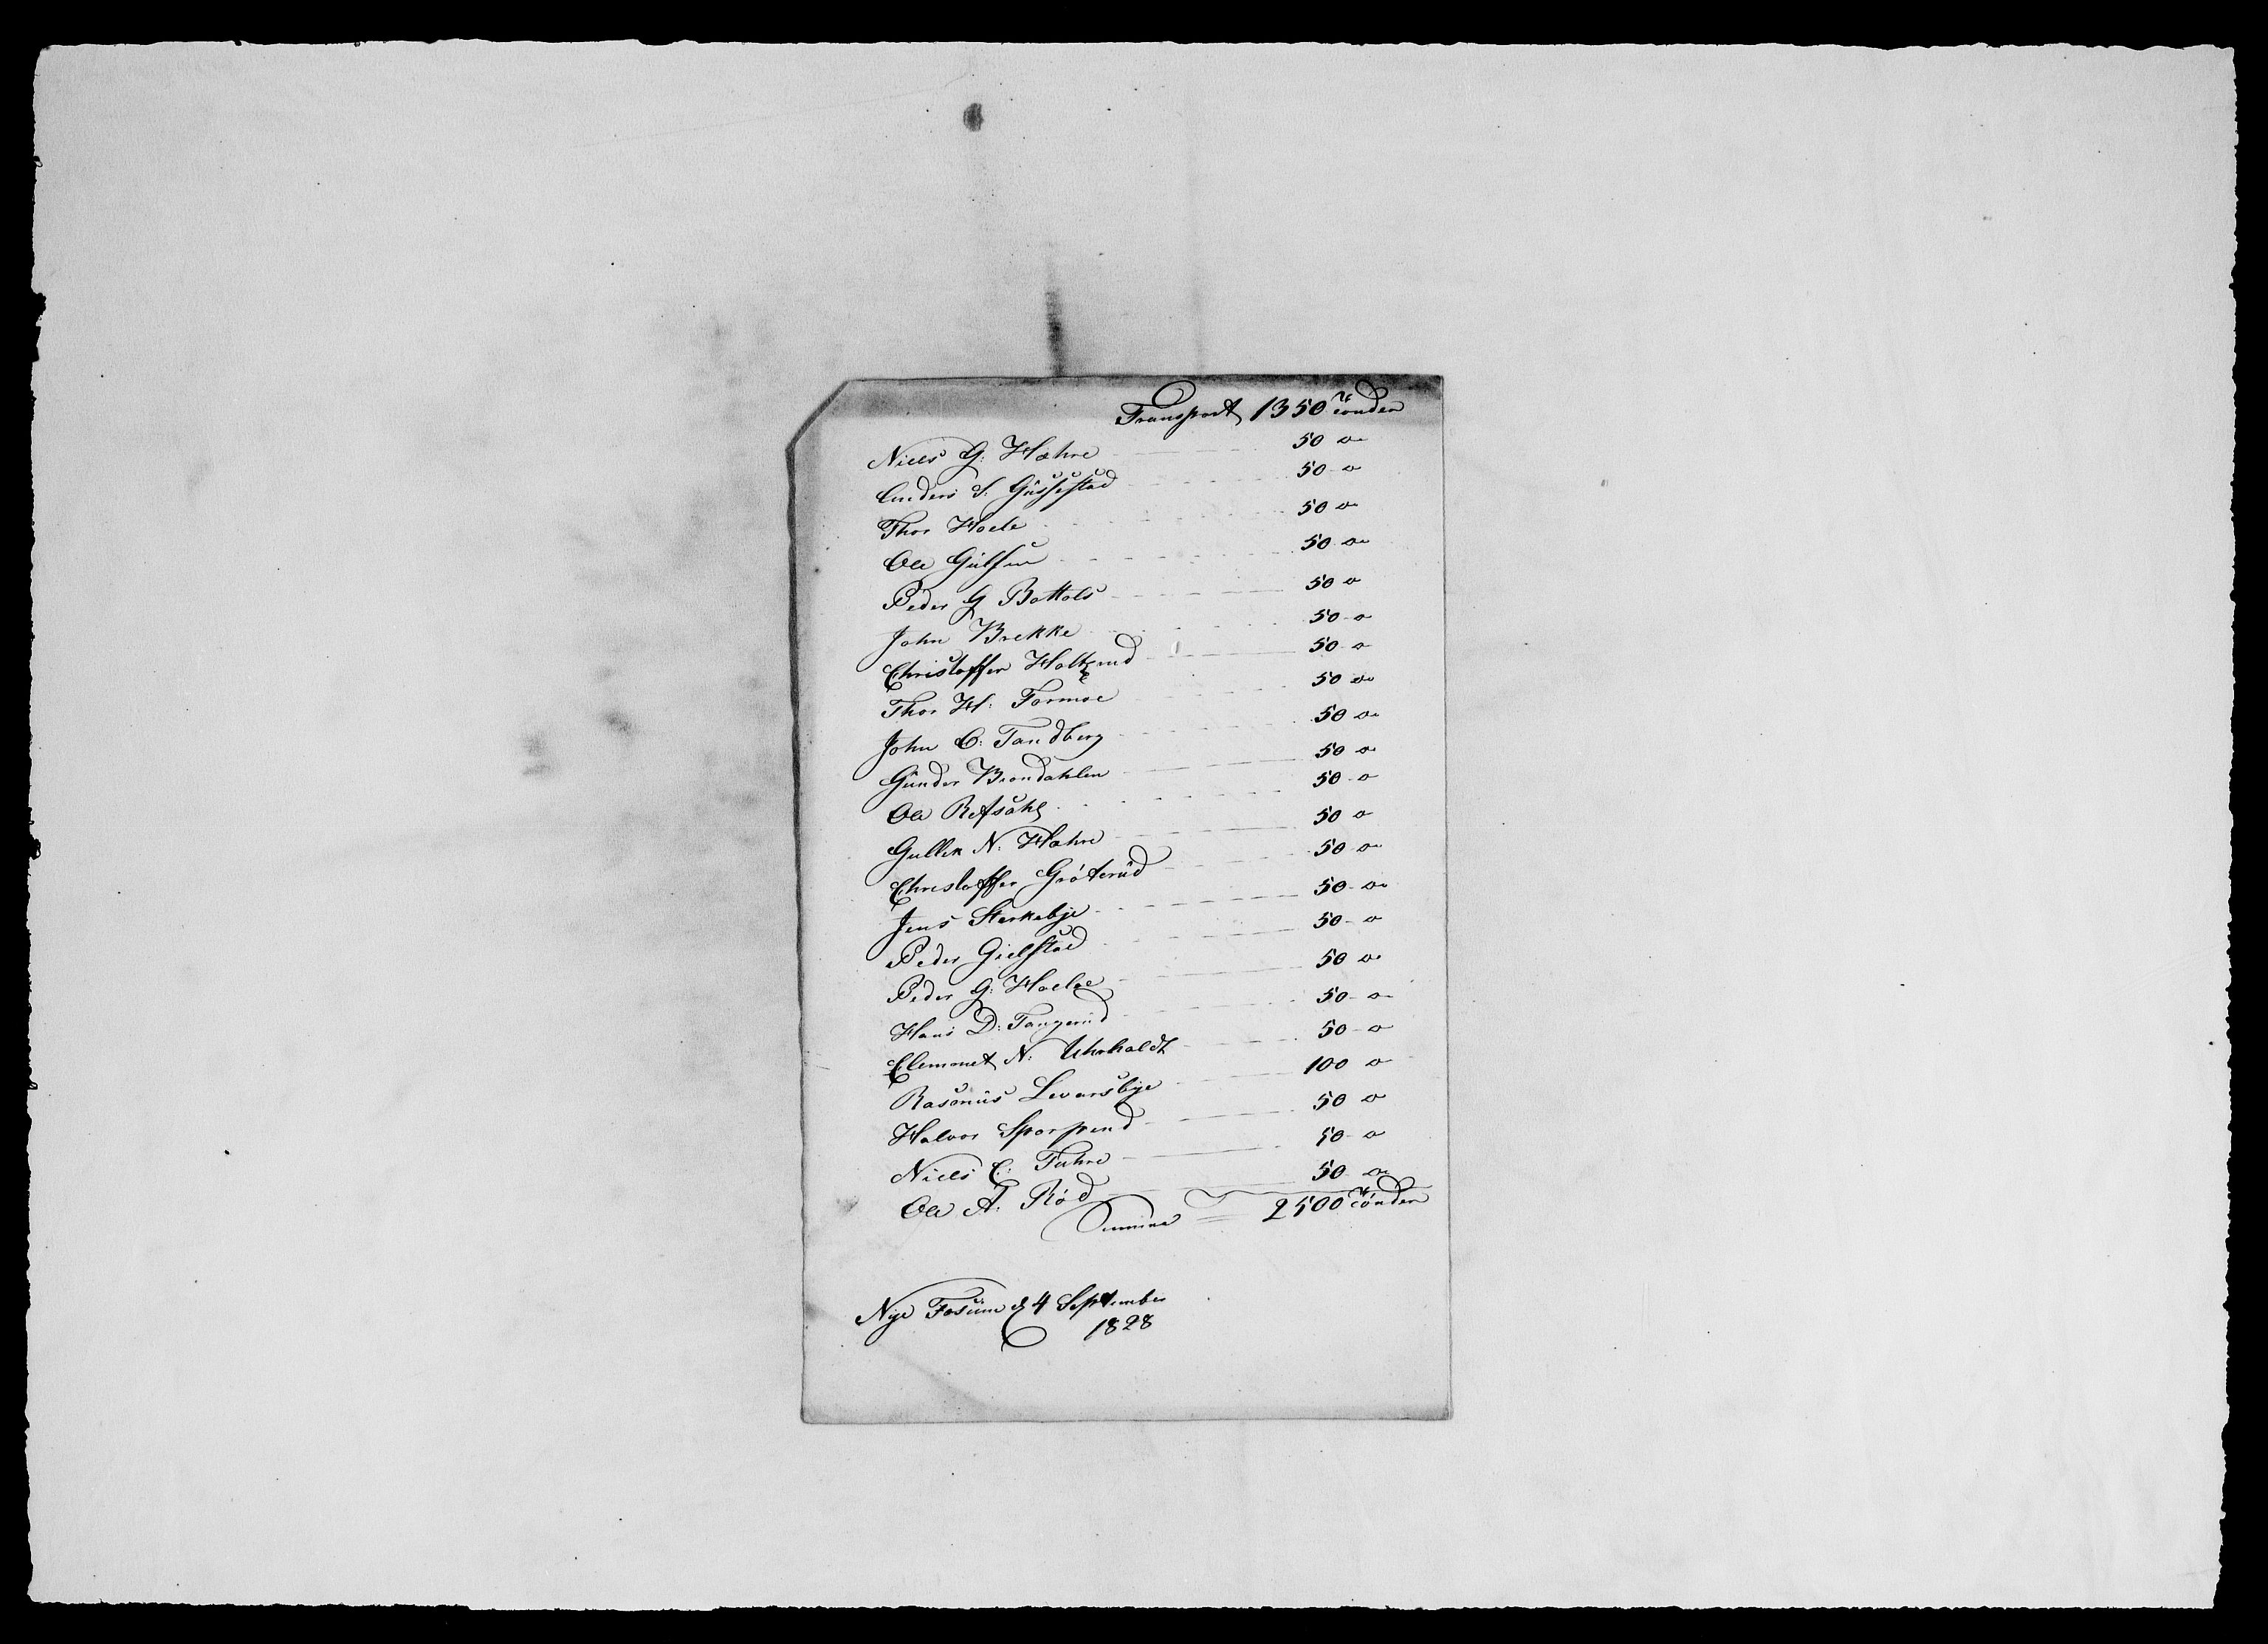 Transport 1350 Tønder
Niels G: Hæhre 50 "
Anders S. Gussestad 50 "
Thor Hoele 50 "
Ole Gulsen 50 "
Peder G Bottols 50 "
John Brekke 50 "
Christoffer Holterud 50 "
Thor H: Formoe 50 "
John C: Tandberg 50 "
Gunder Brondahlen 50 "
Ole Refsahl 50 "
Gullek N: Hæhre 50 "
Christoffer Gróterud 50 "
Jens Sterkebye 50 "
Peder Gielstad 50 "
Peder G: Hoeloe 50 "
Hans D: Tangerud 50 "
Clemmet N: Uhrholdt 50 "
Rasmus Levorsbye 100 "
Halvor Sporpend 50 "
Niels C: Fuhre 50 "
Ole A: Rød 50 "
Summa = 2500 Tønder
Nye Fosum d 4 September
1828